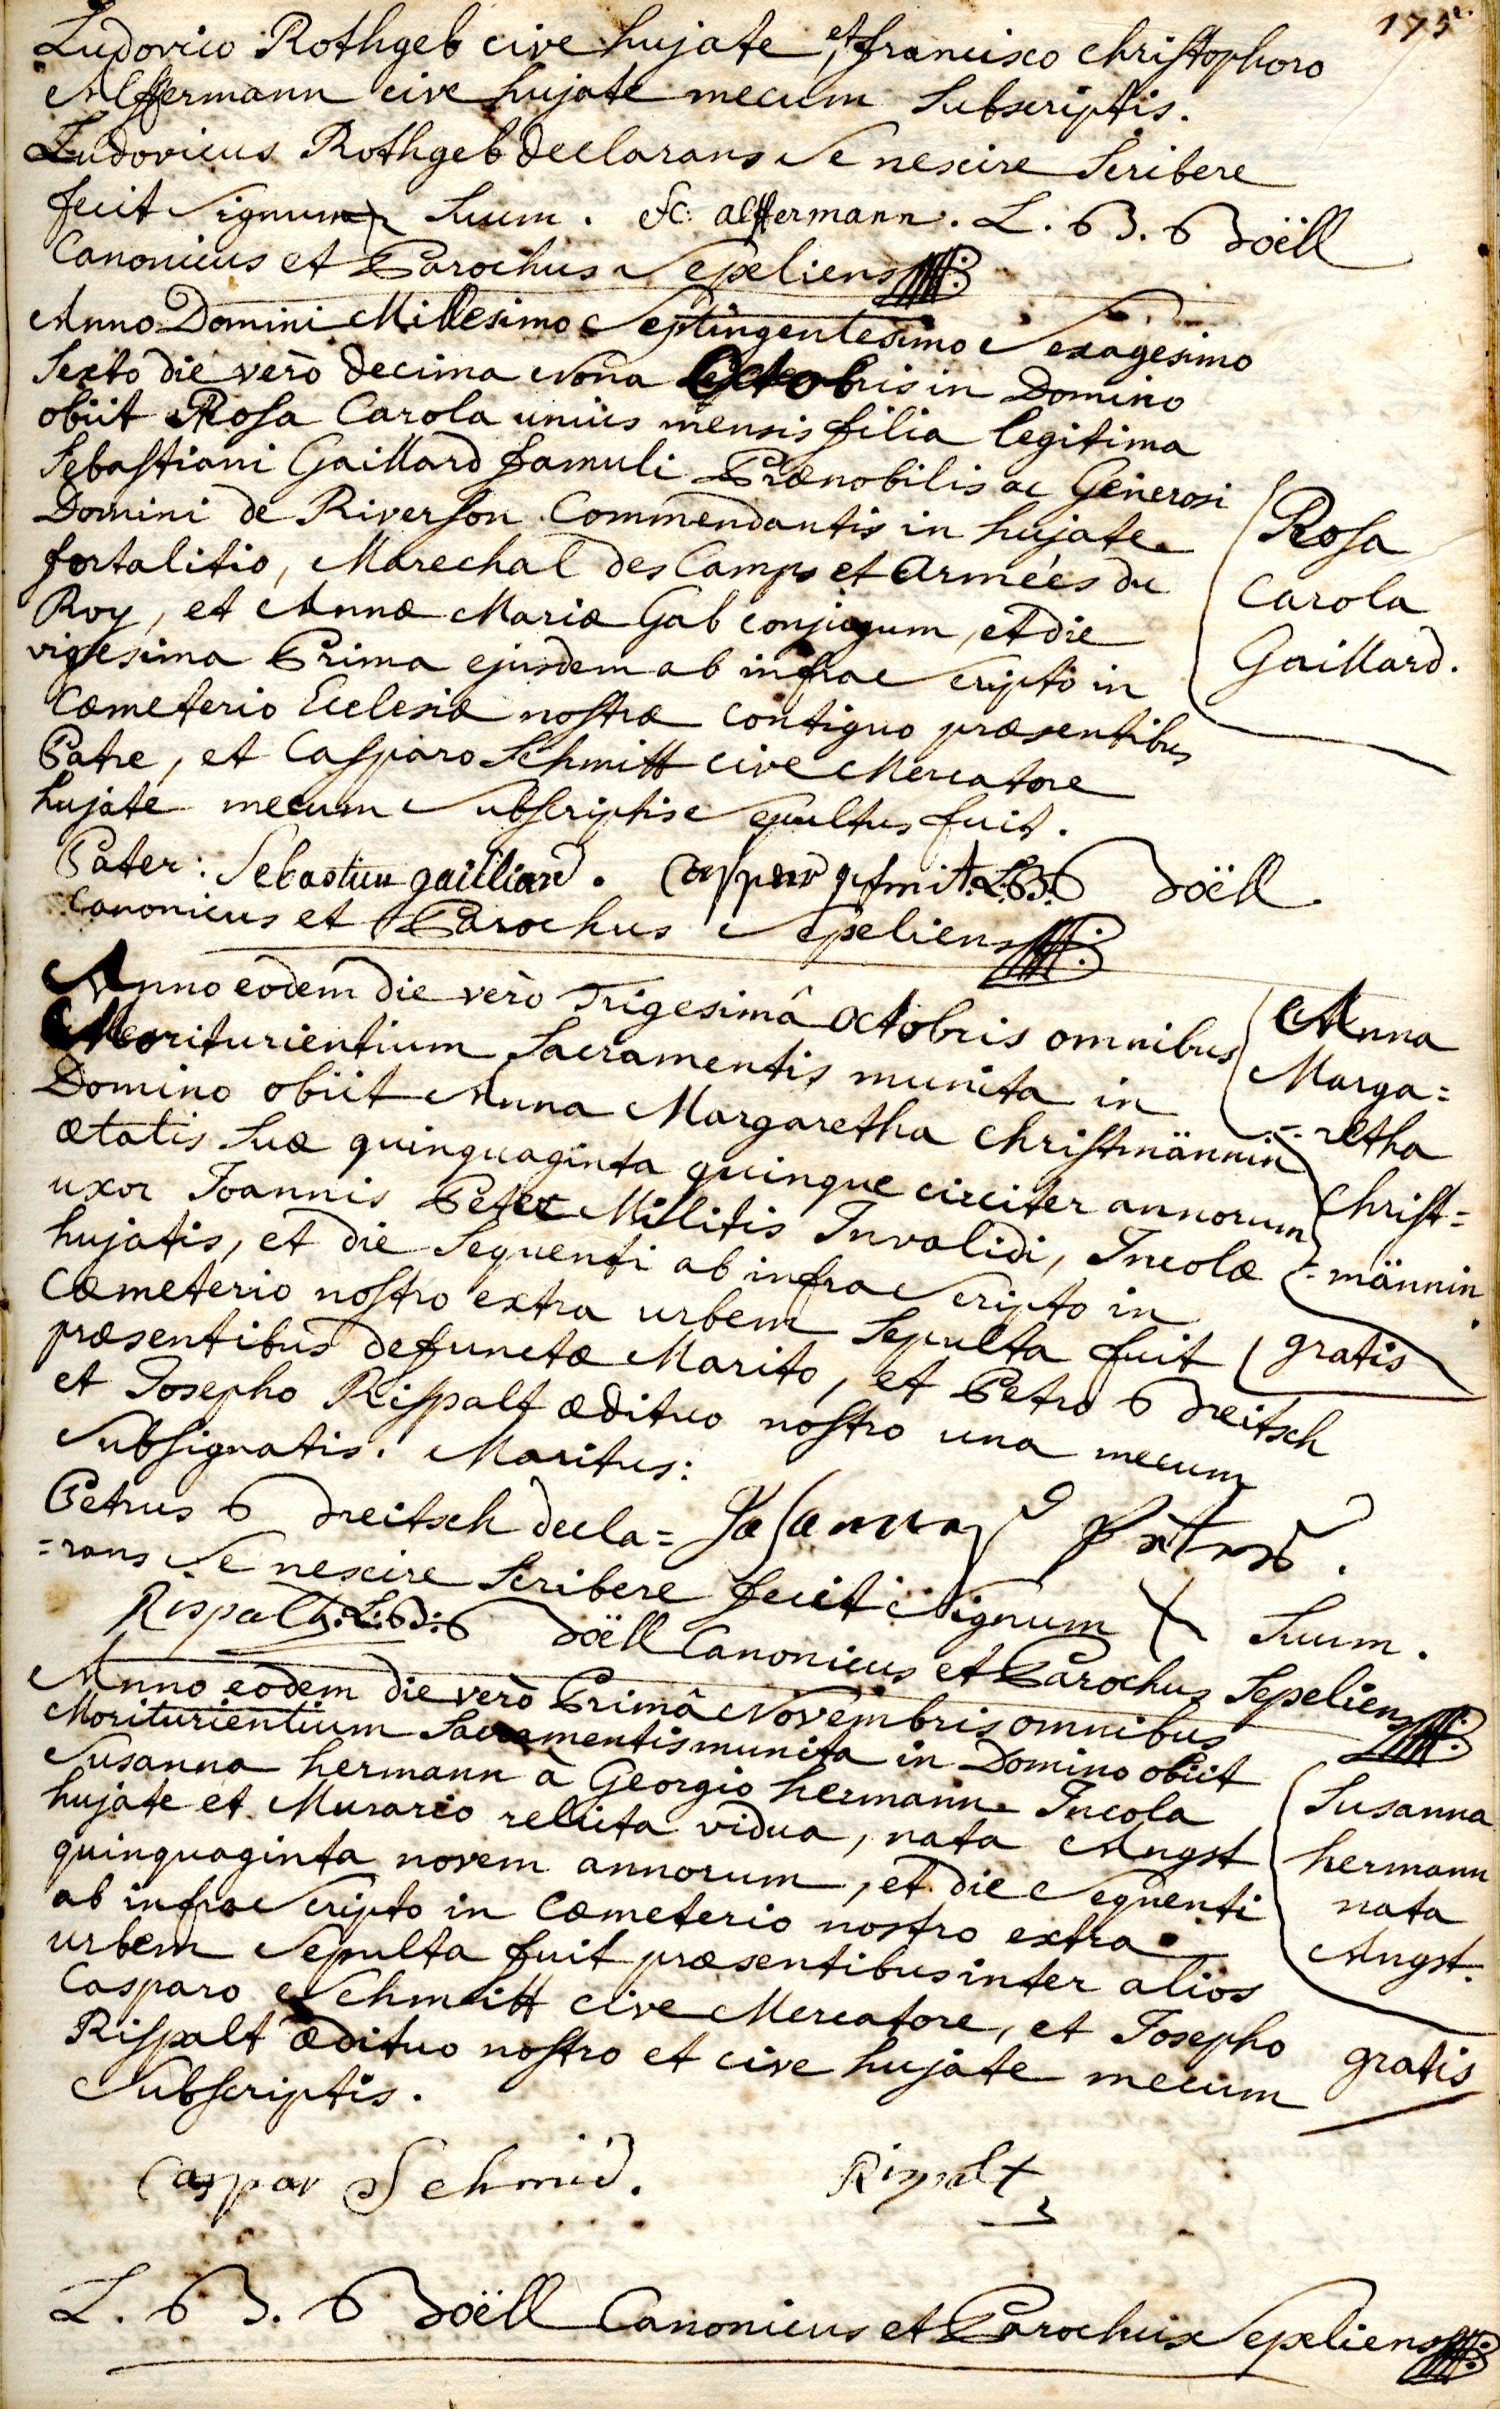 175
Ludovico Rothgeb cive hujate, et francisco christophoro
Alffermann cive hujate mecum Subscriptis.
Ludovicus Rothgeb declarans Se nescire Scribere
fecit Signum Suum. fc: alffermann. L. B. Boëll
Canonicus et Parochus Sepeliens
Anno Domini Millesimo Septingentesimo Sexagesimo
Sexto die verò decima Nona Octobris in Domino
obiit Rosa Carola unius mensis filia legitima
Sebastiani Gaillard famuli Prænobilis ac Generosi
Domini de Riverson Commendantis in hujate
fortalitio, Marechal des Camps et Armées du
Roy, et Annæ Mariæ Gab conjugum, et die
vigesima Prima ejusdem ab infra Scripto in
Cæmeterio Ecclesiæ nostræ contiguo præsentibus
Patre, et Casparo Schmitt cive Mercatore
hujate mecum Subscriptis Sepultus fuit.
Rosa
Carola
Gaillard.
Pater: Sebastian gailliard. Caspar schmit. L. B. Boëll.
Canonicus et Parochus Sepeliens
Anno eodem die verò Trigesimâ Octobris omnibus
Moriturientium Sacramentis munita in
Domino obiit Anna Margaretha Christmännin
ætatis Suæ quinquaginta quinque circiter annorum
uxor Joannis Peter Militis Invalidi, Incolæ
hujatis, et die Sequenti ab infra Scripto in
Cæmeterio nostro extra urbem Sepulta fuit
præsentibus defunctæ Marito, et Petro Breitsch
et Josepho Rispalt ædituo nostro una mecum
Subsignatis. Maritus:
Anna
Marga=
=retha
Christ=
=männin.
gratis
Petrus Breitsch decla=
=rans Se nescire Scribere fecit Signum Suum.
Rispalt. L. B. Boëll Canonicus et Parochus Sepeliens
Anno eodem die verò Primâ Novembris omnibus
Moriturientium Sacramentis munita in Domino obiit
Susanna hermann à Georgio hermann Incola
hujate et Murario relicta vidua, nata Angst
quinquaginta novem annorum, et die Sequenti
ab infra Scripto in Cæmeterio nostro extra
urbem Sepulta fuit præsentibus inter alios
Casparo Schmitt cive Mercatore, et Josepho
Rispalt ædituo nostro et cive hujate mecum
Subscriptis.
Susanna
hermann
nata
Angst.
gratis
Caspar Schmid. Rispalt
L. B. Boëll Canonicus et Parochus Sepeliens